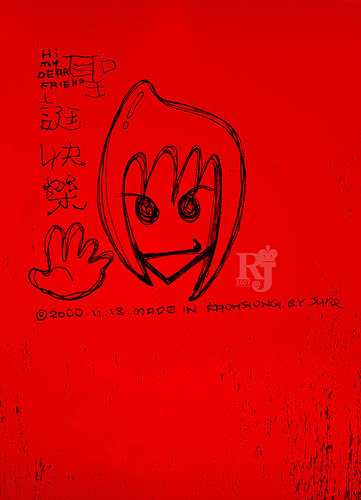 Hi
MY
DEAR
FRIEND
聖
誕
快
樂
RJ
2007
©2000.11.13 MADE IN KAOHSIUNG. BY JUKE